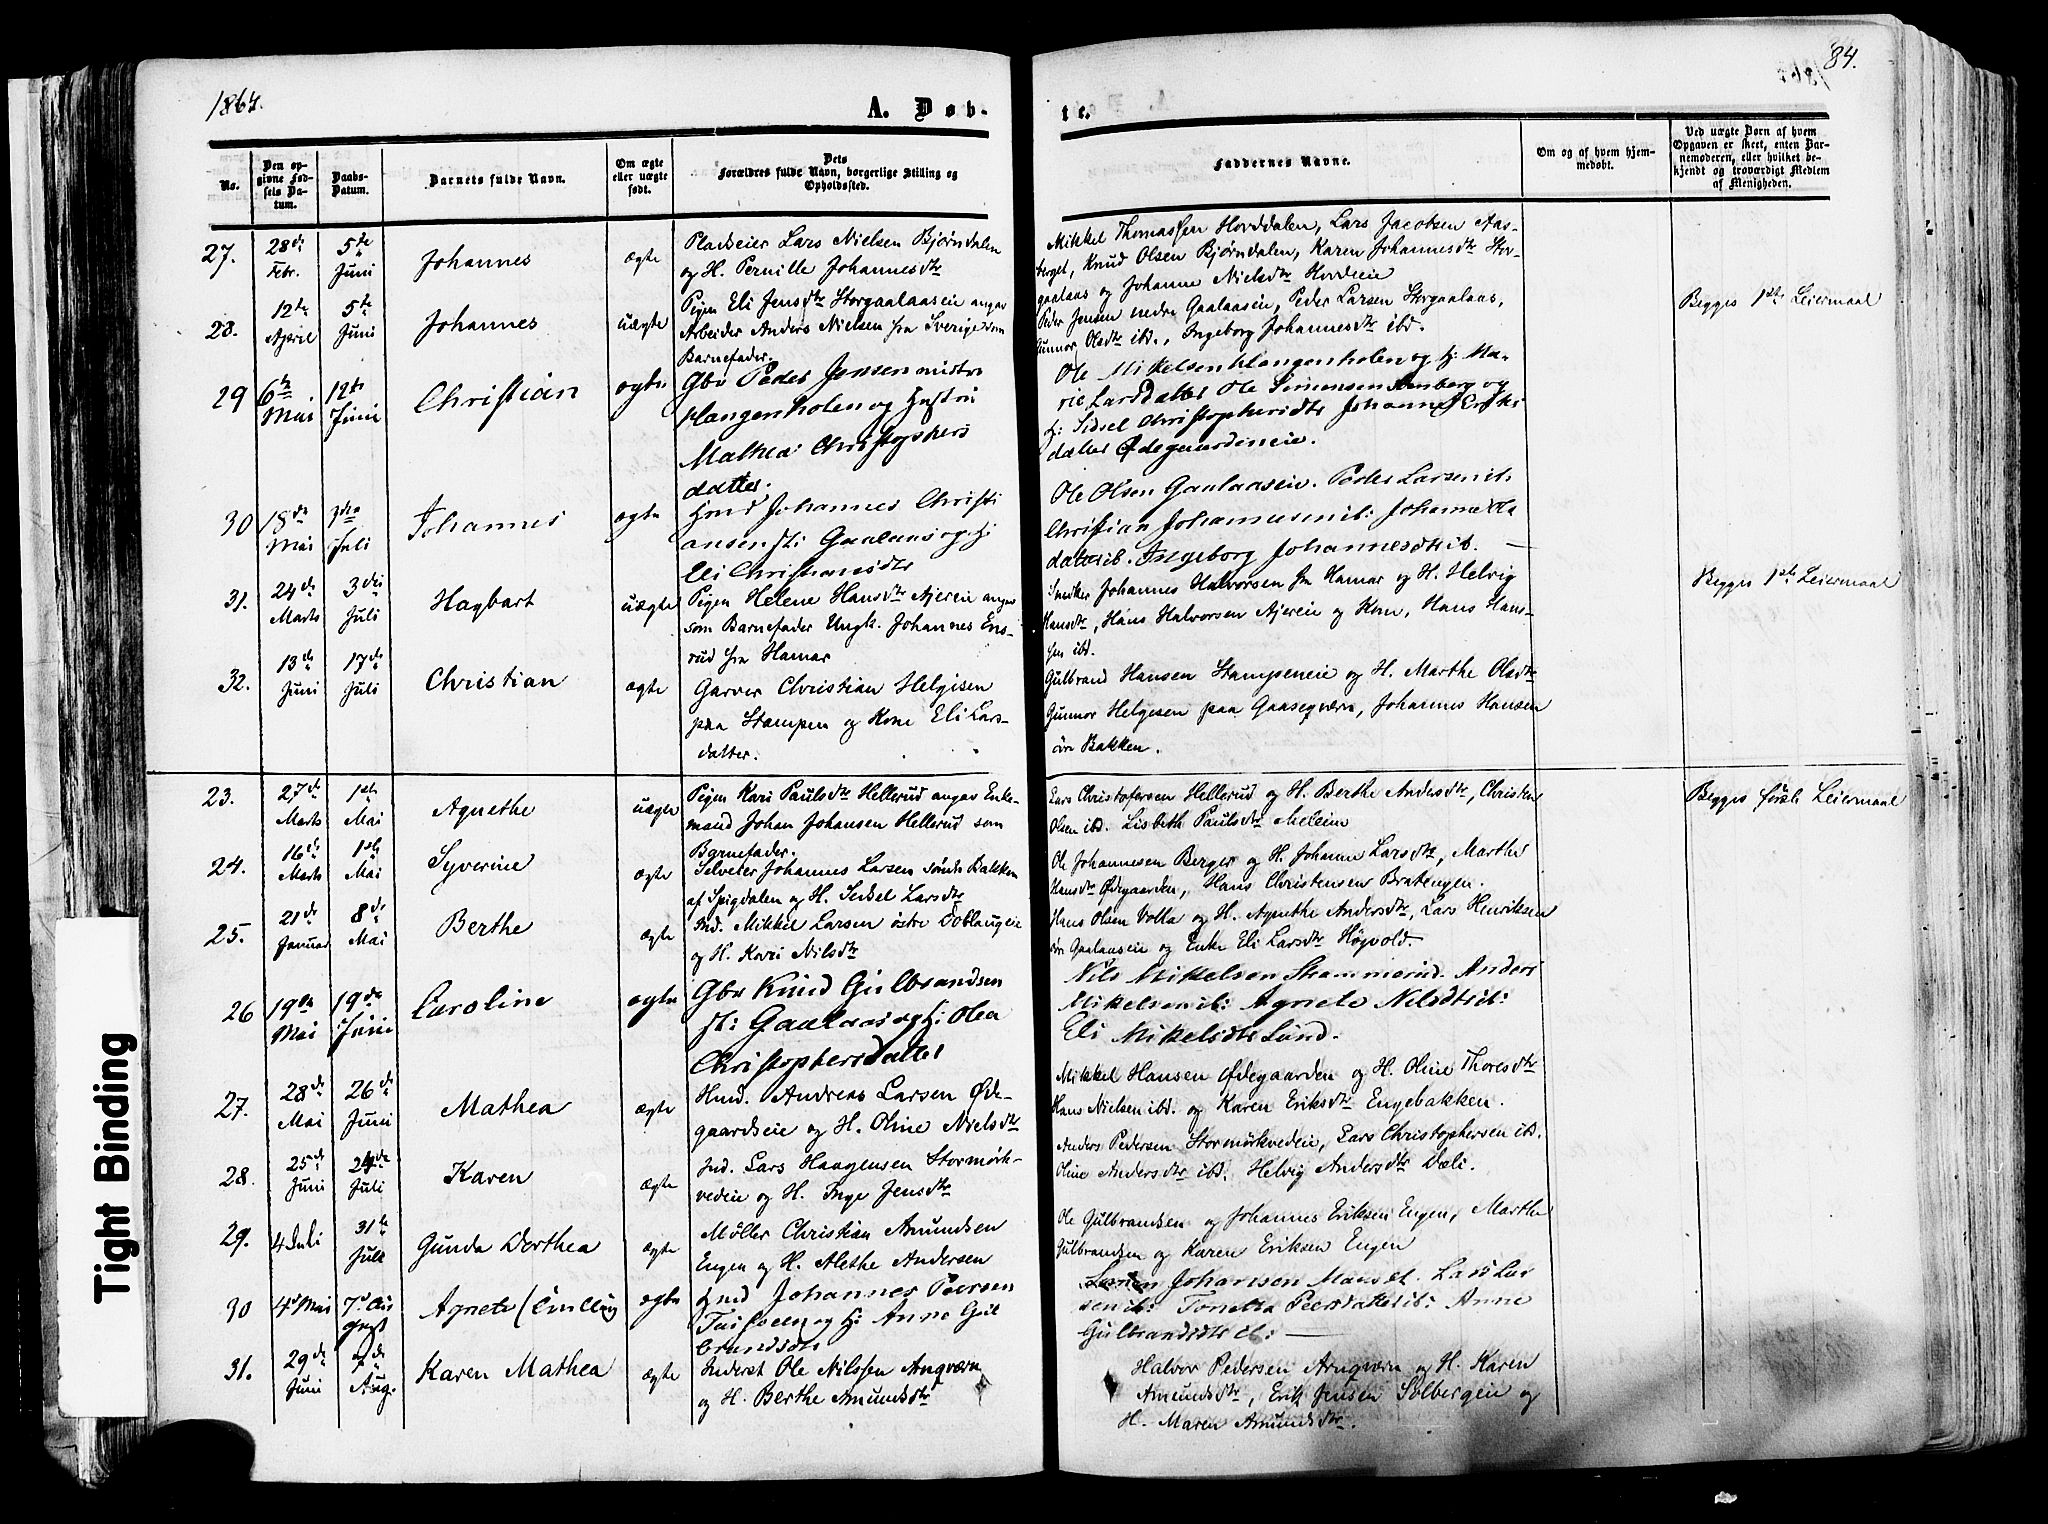 1864.
A. Døb-
te.
84.
No.
Den op-
givne Fød-
sels Da-
tum.
Daabs-
Datum.
Barnets fulde Navn.
Om ægte
eller uægte
født.
Dets
Forældres fulde Navn, borgerlige Stilling og
Opholdssted.
Faddernes Navne.
Om og af hvem hjem-
medøbt.
Ved uægte Børn af hvem
Opgaven er skeet, enten Bar-
nemoderen, eller hvilket be-
kjendt og troværdigt Medlem
af Menigheden.
27.
28de
Febr.
5te
Juni
Johannes
ægte
Pladseier Lars Nielsen Bjørndalen
og H. Pernille Johannesdtr
Mikkel Thomassen Horddalen, Lars Jacobsen Aas-
berget, Knud Olsen Bjørndalen, Karen Johannesdtr Stor-
gaalaas og Johanne Nielsdtr Hordeie
28.
12te
April
5te
Juni
Johannes
uægte
Pigen Eli Jensdtr Storgaalaaseie angav
Arbeider Anders Nielsen fra Sverige som
Barnefader.
Peder Jensen nedre Gaalaaseie, Peder Larsen Storgaalaas,
Gunnor Olsdtr ibd., Ingeborg Johannesdtr ibd.
Begges 1ste Leiermaal
29
6te
Mai
12te
Juni
Christian
ægte
Gbr Peder Jensen mistre
Klangenholen og Hustru
Mathea Christophers
datter.
Ole Mikelsen Klangenholen og H: Ma-
rie Larsdatter Ole Simensen Arnberg og
H: Sidsel Christophersdtr Johanne Eriks
datter Ødegaardeneie.
30
18de
Mai
3die
Juli
Johannes
ægte
Hmd Johannes Christi
ansen st: Gaalaas og H:
Eli Christiansdtr
Ole Olsen Gaalaaseie. Peder Larsen ib.
Christian Johannesen ib: Johanne Ola
datter ib. Ingeborg Johannesdtr ib.
31.
24de
Marts
3die
Juli
Hagbart
uægte
Pigen Helene Hansdtr Ajereie angav
som Barnefader Ungk. Johannes Ens-
rud fra Hamar
Snedker Johannes Halvorsen fra Hamar og H. Helvig
Hansdtr, Hans Halvorsen Ajereie og Kone, Hans Han-
sen ibd.
Begges 1ste Leiermaal
32.
13de
Juni
17de
Juli
Christian
ægte
Garver Christian Helgesen
paa Stampen og Kone Eli Lars-
datter.
Gulbrand Hansen Stampeneie og H. Marthe Olsdtr
Gunnor Helgesen paa Gaasegværn, Johannes Hansen
øvre Bakken.
23.
27de
Marts
1ste
Mai
Agnethe
uægte
Pigen Kari Paulsdtr Hellerud angav Enke-
mand Johan Johansen Hellerud som
Barnefader.
Lars Christofersen Hellerud og H. Berthe Andersdtr, Christen
Olsen ibd. Lisbeth Paulsdtr Meleim
Begges første Leiermaal
24.
16de
Marts
1ste
Mai
Syverine
ægte
Selveier Johannes Larsen søndre Bakken
af Spigdalen og H. Sedsel Larsdtr
Ole Johannesen Berger og H. Johanne Larsdtr, Marthe
Hansdtr Ødegaarden, Hans Christensen Bratengen.
25.
21de
Januar
8de
Mai
Berthe
ægte
Ind. Mikkel Larsen østre Doblaugeie
og H. Kari Nilsdtr
Hans Olsen Volla og H. Agnethe Andersdtr, Lars Henriksen
øvre Gaalaaseie og Enke Eli Larsdtr Høgvold.
26
19de
Mai
19de
Juni
Caroline
ægte
Gbr Knud Gulbrandsen
st: Gaalaas og H: Olea
Christophersdatter
Nils Mikelsen Strammerud. Anders
Mikelsen ib: Agnete Nelsdtr ib:
Eli Mikelsdtr Lund.
27.
28de
Mai
26de
Juni
Mathea
ægte
Hmd. Andreas Larsen Øde-
gaardseie og H. Oline Nielsdtr
Mikkel Hansen Ødegaarden og H. Oline Thoresdtr
Hans Nielsen ibd. og Karen Eriksdtr Engebakken.
28.
25de
Juni
24de
Juli
Karen
ægte
Ind. Lars Haagensen Stormørk-
vedeie og H. Inge Jensdtr
Anders Pedersen Stormørkvedeie, Lars Christophersen ibd.
Oline Andersdtr ibd. Helvig Andersdtr Dæli.
29.
4 Juli
31te
Juli
Gunda Dorthea
ægte
Møller Christian Amundsen
Engen og H. Alethe Andersen
Ole Gulbrandsen og Johannes Eriksen Engen, Marthe
Gulbrandsen og Karen Eriksen Engen
30
4de Mai
7de Au
gust
Agnete (Emilie)
ægte
Hmd Johannes Peersen
og H: Anne Gul
brandsdtr
Johansen Manset. Lars Lar
sen ib: Tonetta Peersdatter ib: Anne
Gulbrandsdtr ib:
31.
29de
Juni
7de
Aug.
Karen Mathea
ægte
Inderst Ole Nilssen Angværn
og H. Berthe Amundsdtr
Halvor Pedersen Arngværn og H. Karen
Amundsdtr, Erik Jensen Solbergeie og
H. Maren Amundsdtr.
Tight Binding